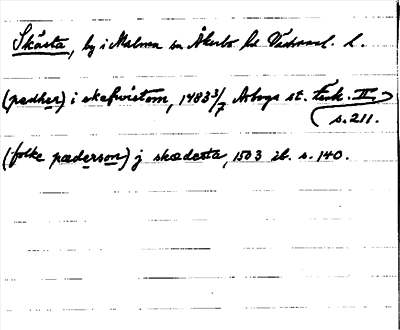 Skästa, by i Malma sn Åkerbo hd Västmanl. l.
(pædher) i skefwistom, 1483 3/7 Arboga st. tänk. II.
s. 211.
(folke pæderson) j skædesta, 1503 ib. s. 140.